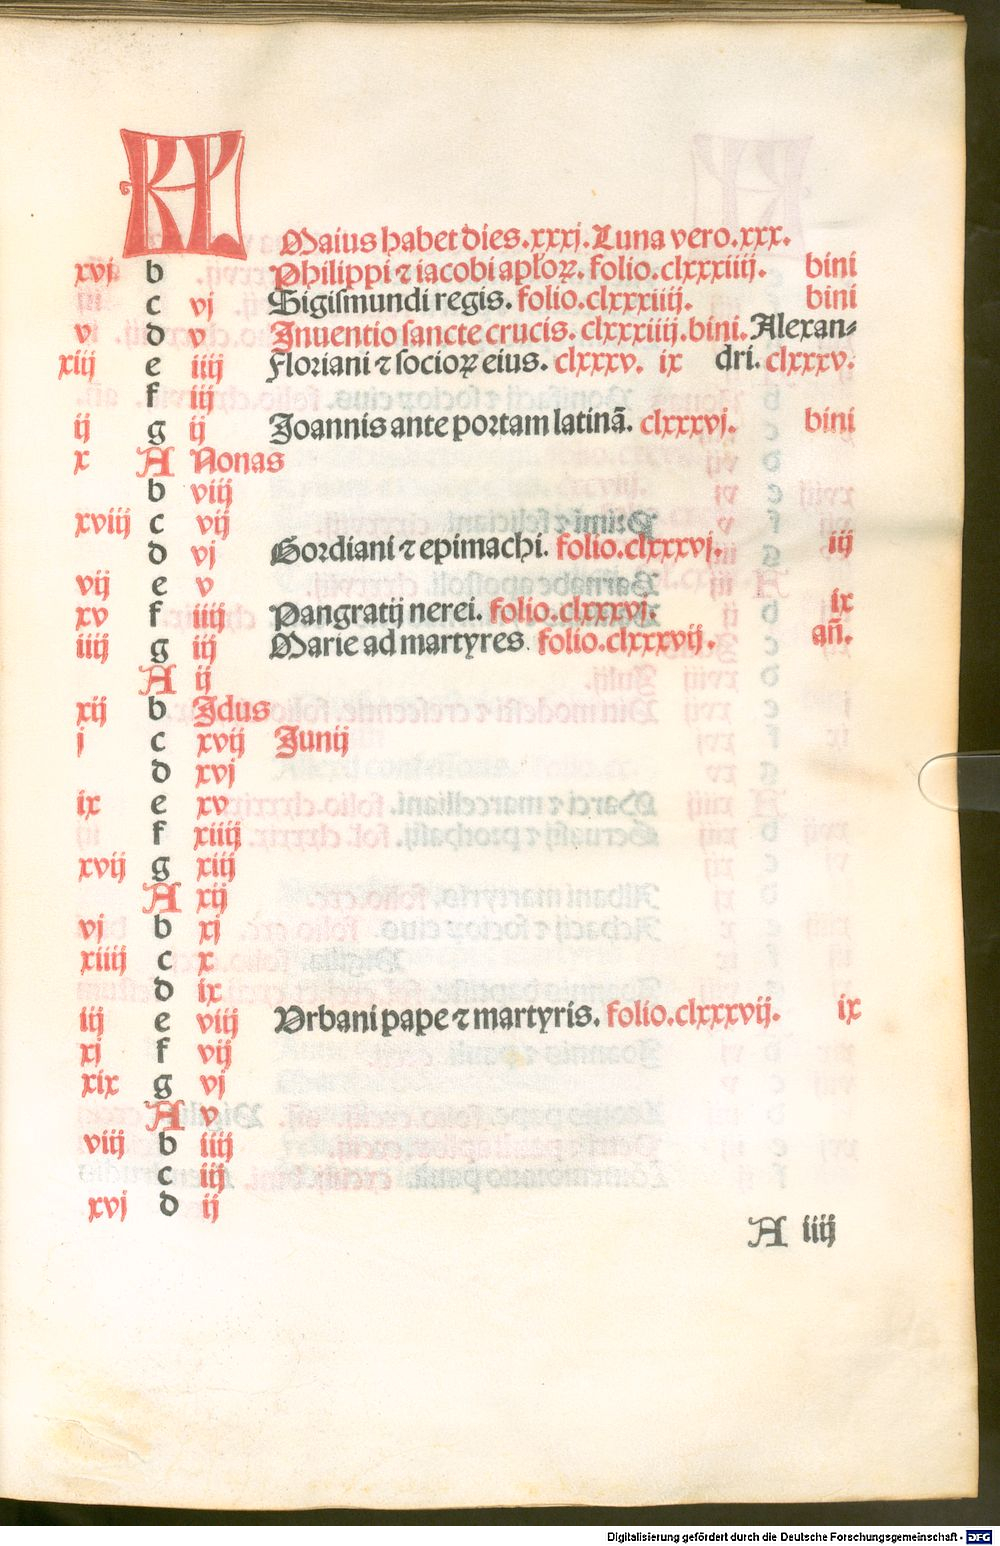 KL
Maius habet dies.xxxj.Luna vero.xxx.
xvj b Philippi ⁊ iacobi apłoꝝ. folio.clxxxiiij. bini
c vj Sigiſmundi regis. folio.clxxxiiij. bini
v d v Inuentio ſancte crucis. clxxxiiij.bini. Alexan⸗
xiij e iiij Floriani ⁊ ſocioꝝ eius. clxxxv. ix dri. clxxxv.
f iij
ij g ij Joannis ante portam latinā. clxxxvj. bini
x A Nonas
b viij
xviij c vij
d vj Gordiani ⁊ epimachi. folio.clxxxvj. iij
vij e v
xv f iiij Pangratij nerei. folio.clxxxvj. ix
iiij g iij Marie ad martyres. folio.clxxxvij. añ.
A ij
xij b Idus
j c xvij Junij
d xvj
ix e xv
f xiiij
xvij g xiij
A xij
vj b xj
xiiij c x
d ix
iij e viij Vrbani pape ⁊ martyris. folio.clxxxvij. ix
xj f vij
xix g vj
A v
viij b iiij
c iij
xvj d ij
A iiij
Digitalisierung gefördert durch die Deutsche Forschungsgemeinschaft - DFG